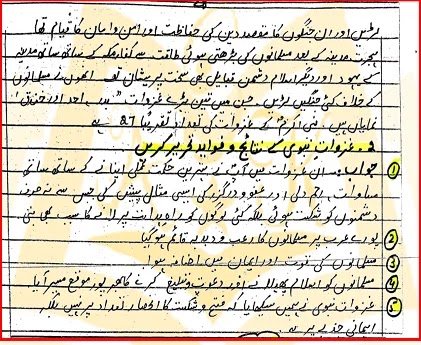 لڑیں اور ان جنگوں کا مقصد دین کی حفاظت اور امن و امان کا قیام تھا
ہجرت مدینہ کے بعد مسلمانوں کی بڑھتی ہوئی طاقت سے کفار مکہ کے ساتھ ساتھ مدینہ
کے یہود اور دیگر اسلام دشمن قبایل بھی سخت پریشان تھے انھوں نے مسلمانوں
کے خلاف کئی جنگیں لڑیں۔ جن میں تین بڑے غزوات "بدر، احد اور خندق"
نمایاں ہیں۔ نبی اکرمؐ کے غزوات کی تعداد تقریبًا 27 ہے
2۔ غزوات نبوی کے نتائج و فواید تحریر کریں
1 جواب:۔ ان غزوات میں آپؐ نے بہترین حکمت عملی اپنانے کے ساتھ ساتھ
مساوات، رحم دلی اور عفو و درگزر کی ایسی مثال پیش کی جس سے نہ صرف
دشمنوں کو شکست ہوئی بلکہ کئی لوگوں کو راہ ہدایت پر لانے کا سبب بھی بنی
2 پورے عرب پر مسلمانوں کا رعب و دبدبہ قائم ہو گیا
3 مسلمانوں کی قوت اور ایمان میں اضافہ ہوا
4 مسلمانوں کو اسلام پھیلانے اور دعوت و تبلیغ کرنے کا بھرپور موقع میسر آیا
5 غزوات نبوی نے ہمیں سکھایا کہ فتح و شکست کا انحصار تعداد پر نہیں بلکہ
ایمانی جذبے پر ہے۔